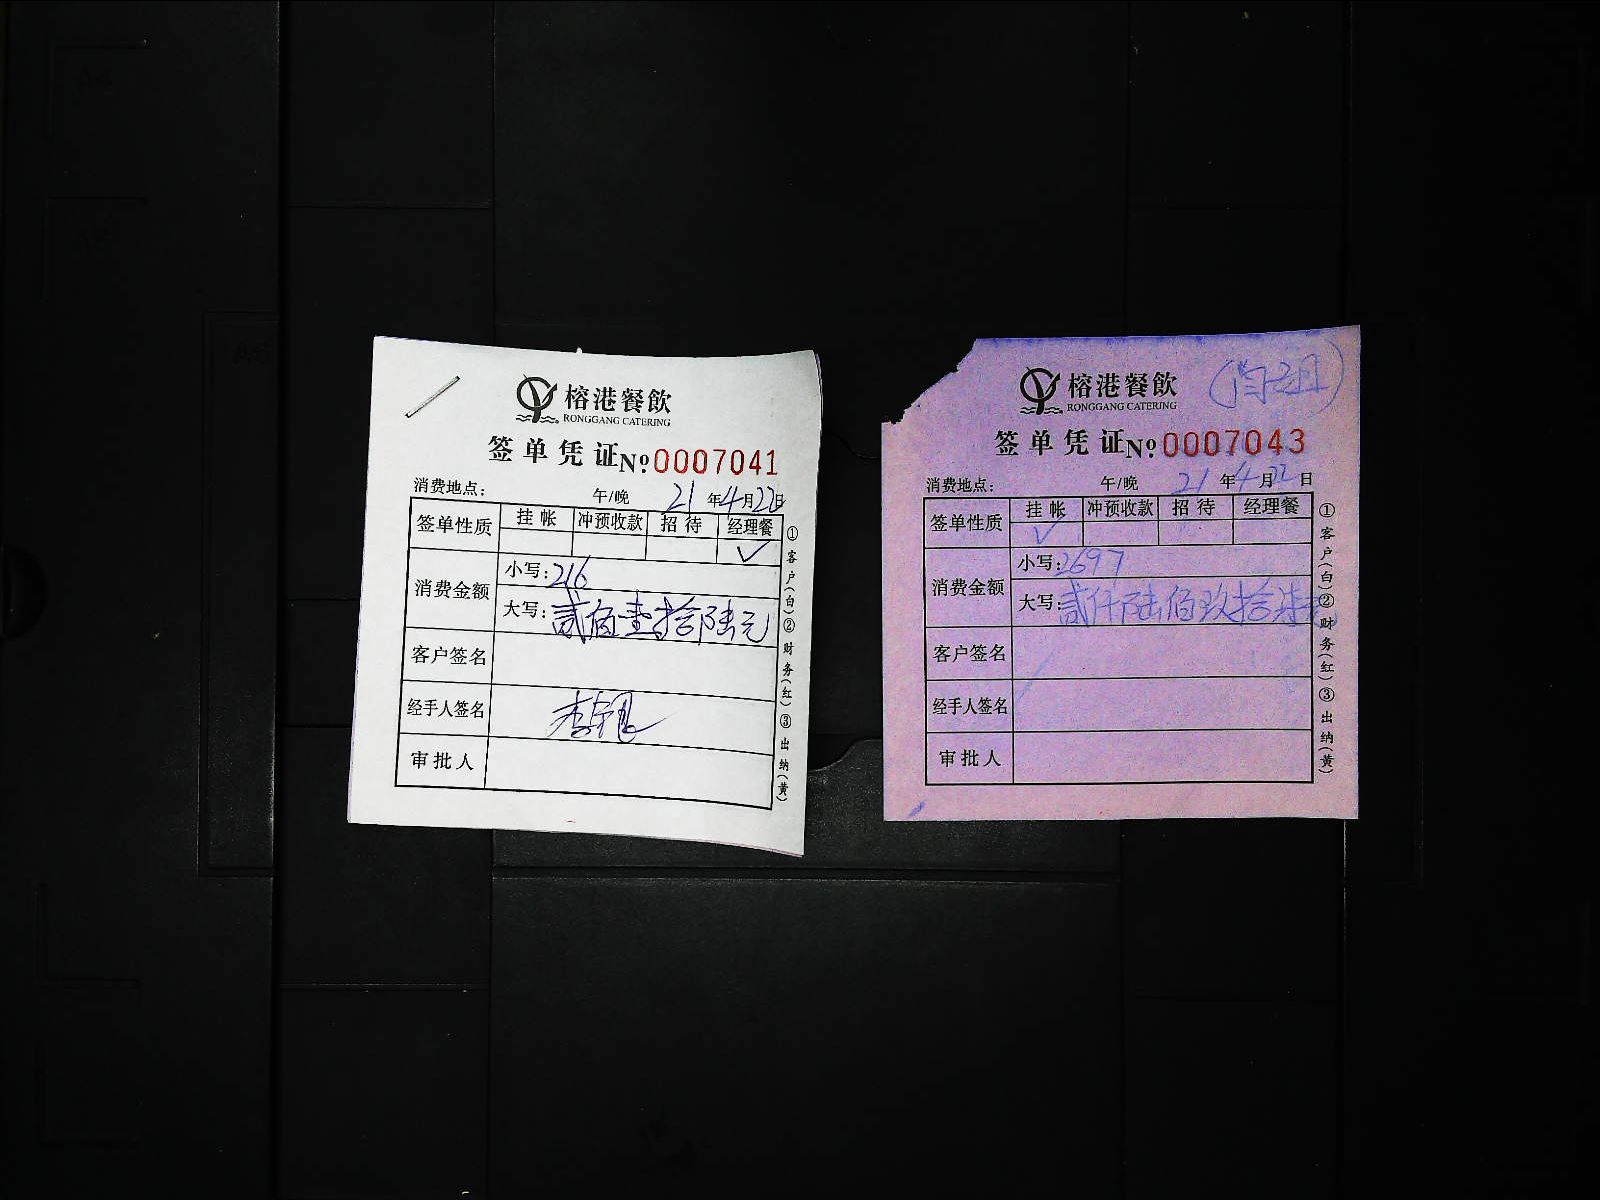 榕港餐飲
RONGGANG CATERING
签单凭证№0007041
消费地点： 午/晚 21年4月22日
签单性质 挂帐 冲预收款 招待 经理餐
✓
消费金额 小写：216
大写：贰佰壹拾陆元
客户签名
经手人签名
审批人
①客户(白)②财务(红)③出纳(黄)
榕港餐飲
RONGGANG CATERING
签单凭证№0007043
消费地点： 午/晚 21年4月22日
签单性质 挂帐 冲预收款 招待 经理餐
✓
消费金额 小写：2697
大写：贰仟陆佰玖拾柒元
客户签名
经手人签名
审批人
①客户(白)②财务(红)③出纳(黄)